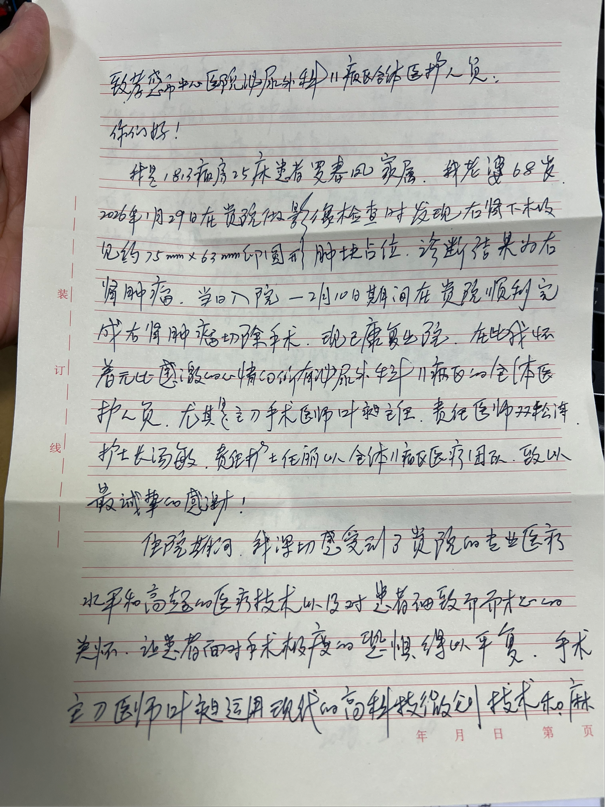 致孝感市中心医院泌尿外科II病区全体医护人员：
你们好！
我是1813病房25床患者罗春风家属．我老婆68岁．
2026年1月29日在贵院做影像检查时发现右肾下极
见约75mm×63mm卵圆形肿块占位．诊断结果为右
肾肿瘤．当日入院—2月10日期间在贵院顺利完
成右肾肿瘤切除手术．现已康复出院．在此我怀
着无比感激的心情向所有泌尿外科II病区的全体医
护人员．尤其是主刀手术医师叶 主任．责任医师
护士长汤敏．责任护士任丽以全体II病区医疗团队．致以
最诚挚的感谢！
住院期间．我深切感受到了贵院的专业医疗
水平和高超的医疗技术以及对患者细致而耐心的
关怀．让患者面对手术极度的恐惧得以平复．手术
主刀医师叶 运用现代的高科技微创技术和麻
装
订
线
年 月 日 第 页